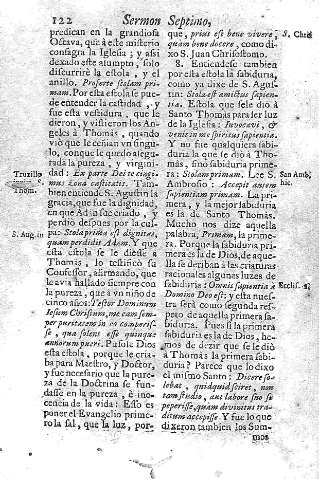 122 Sermon Septimo,
predican en la grandiosa
Octava, que à este misterio
consagra la Iglesia; y assi
dexado este assumpto, solo
discurrirè la estola, y el
anillo. Proferte stolam pri-
mam. Por esta estola se pue-
de entender la castidad, y
fue esta vestidura, que le
dieron, y vistieron los An-
geles à Thomas, quando
viò que le ceñian vn cingu-
lo, conque le quedò alegu-
rada la pureza, y virgini-
dad: Ex parte Dei te cingi-
mus zona castitatis. Tam-
bien enciende S. Agustin la
gracia, que fue la dignidad,
en que Adan fue criado, y
perdiò despues por la cul-
pa: Stola prima est dignitas,
quam perdidit Adam. Y que
esta estola se le diesse à
Thomas, lo testificò su
Confessor, afirmando, que
le avia hallado siempre con
la pureza, que à vn niño de
cinco años: Testor Dominum
Iesum Christum, me eam sem-
per puritatem in eo comperis-
se, qua solent esse quinque
annorum pueri. Pusole Dios
esta estola, porque le cria-
ba para Maestro, y Doctor,
y fue necesario que la pure-
za de la Doctrina se fun-
dasse en la pureza, è ino-
cencia de la vida: Esso es
poner el Evangelio prime-
ro la sal, que la luz, por-
Truxillo
Thom.
S. Aug. in
que, prius est bene vivere,
quam bene docere, como di-
xo S. Juan Chrisostomo.
8. Entiendese tambien
por esta estola la sabiduria,
como ya dixe de S. Agus-
tin: Stola est amictus sapien-
tiæ. Estola que se le diò à
Santo Thomas para ser luz
de la Iglesia: Invocavi, &
venit in me spiritus sapientiæ.
Y no fue qualquiera sabi-
duria la que se diò à Tho-
mas, sino sabiduria prime-
ra: Stolam primam. Lee S.
Ambrosio: Accepit annem
sapientiam primam. La pri-
mera, y la mejor sabiduria
es la de Santo Thomas.
Mucho nos dize aquella
palabra, Primam, la prime-
ra. Porque la sabiduria pri-
mera es la de Dios, de aque-
lla se derivan à las criaturas
racionales algunas luzes de
sabiduria: Omnis sapientia à
Domino Deo est: y esta pues-
ta serà como segunda ref-
pero de aquella primera sa-
biduria. Pues si la primera
sabiduria es la de Dios, he-
mos de dezir que se le diò
à Thomas la primera sabi-
duria? Parece que lo dixo
el mismo Santo: Dicere so-
lebat, quidquid sciret, non
tam studio, aut labore suo se
peperisse, quam divinitus tra-
ditum accepisse. Y fue lo que
dizeron tambien los Sum-
mos
S. Chris
San Amb.
Eccles.